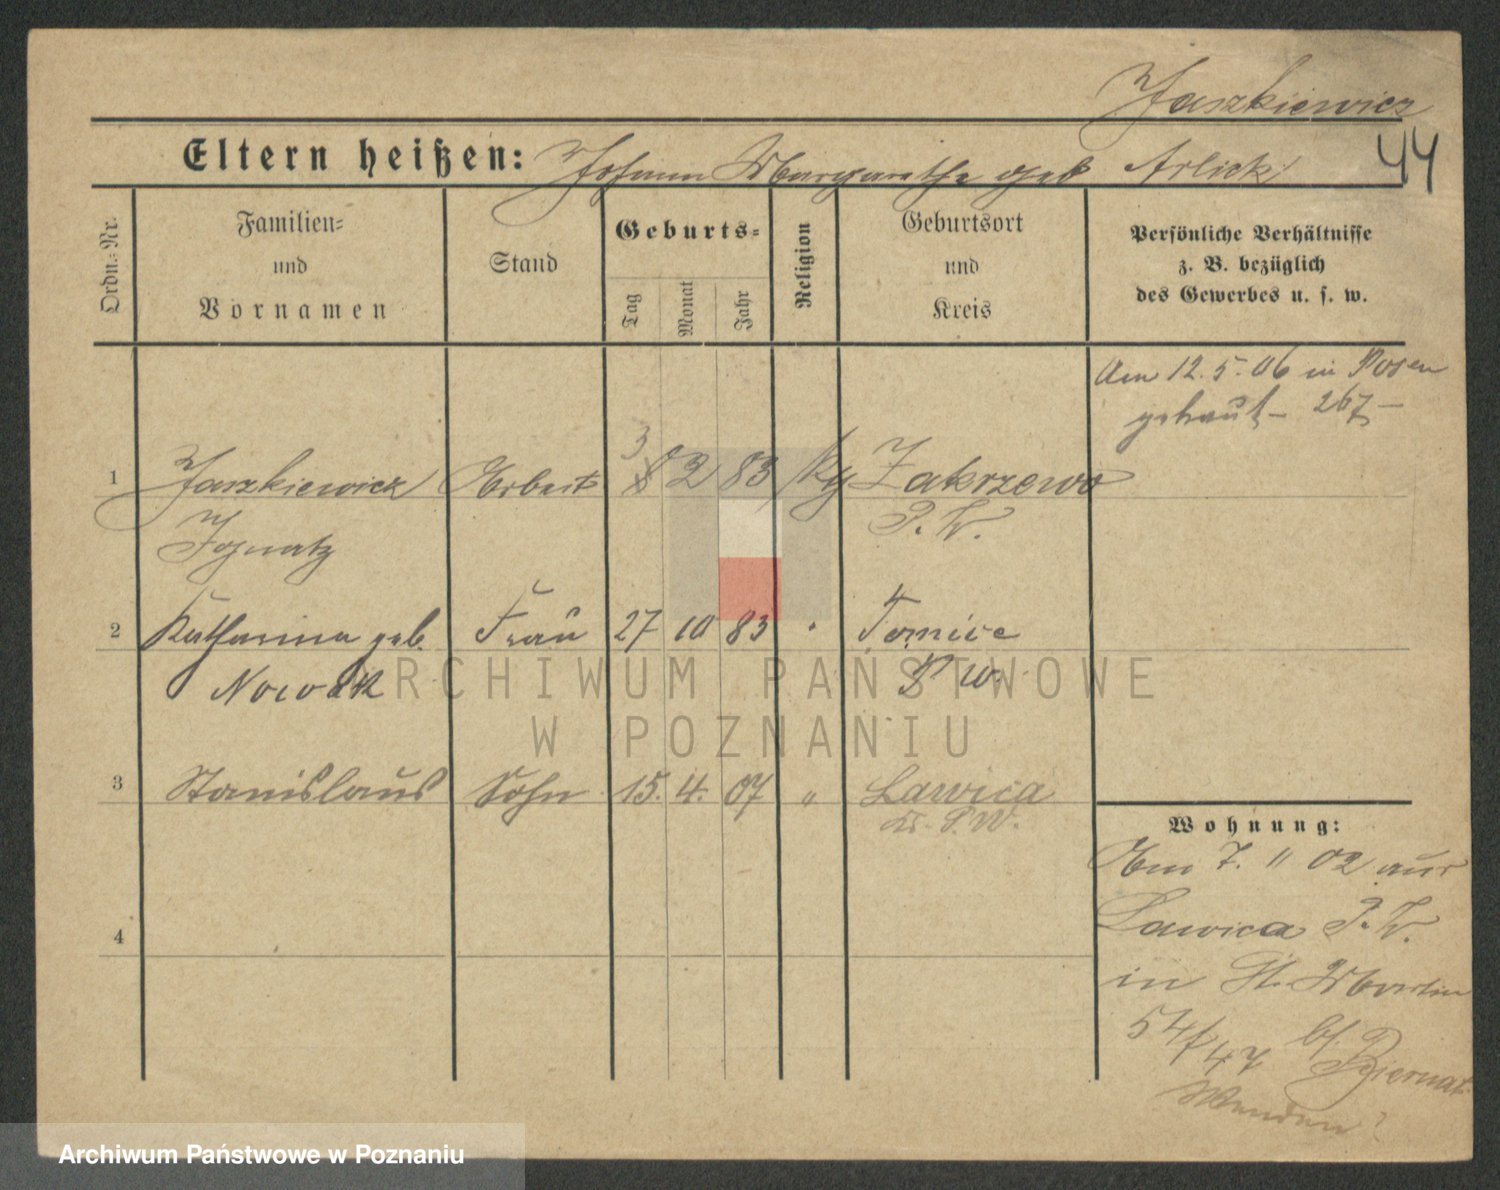 Jaszkiewicz
Eltern heißen: Johann Margarethe geb Arlick
44
Ordn.-Nr.
Familien-
und
Vornamen
Stand
Geburts-
Tag
Monat
Jahr
Religion
Geburtsort
und
Kreis
Persönliche Verhältnisse
z. B. bezüglich
des Gewerbes u. s. w.
Am 12. 5. 06 in Posen
getraut - 267 -
1 Jaszkiewicz Arbeit 3 2 83 Zakrzewo
Ignatz P. W.
2 Katharina geb. Frau 27 10 83 Tomice
Nowak P W.
3 Stanislaus Sohn 15. 4. 07 " Lawica
Kr. P. W.
4
Wohnung:
Am 7. 11 02 aus
Lawica P. W.
in St. Martin
54/47 bf. Biernat
Wenden?
ARCHIWUM PAŃSTWOWE
W POZNANIU
Archiwum Państwowe w Poznaniu